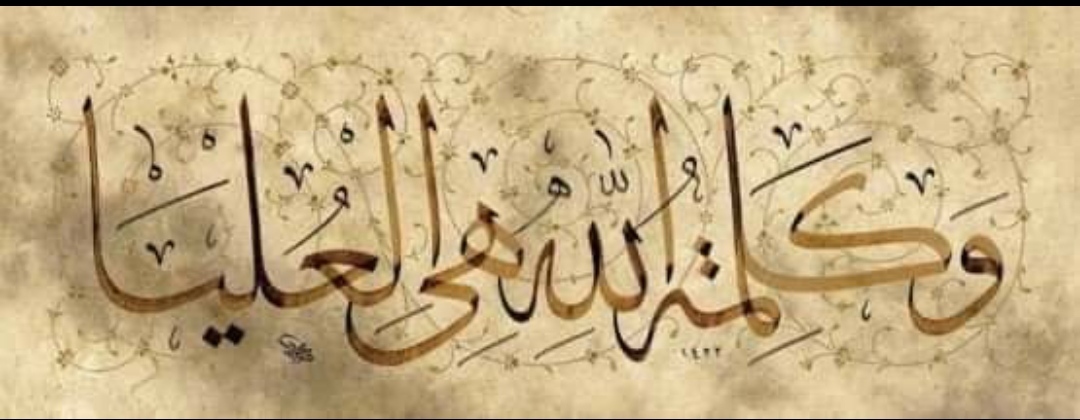 وَكَلِمَةُ اللّٰهِ هِيَ الْعُلْيَا
١٤٣٣